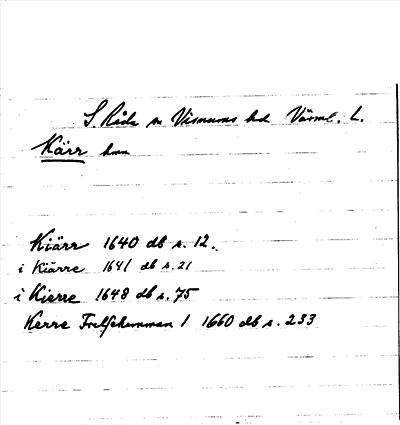 S. Råda sn Visnums hd Värml. L.
Kärr hmn
Kiärr 1640 db s. 12.
i Kiärre 1641 db s. 21
i Kierre 1648 db s. 75
Kerre Frelsehemman 1 1660 db s. 233